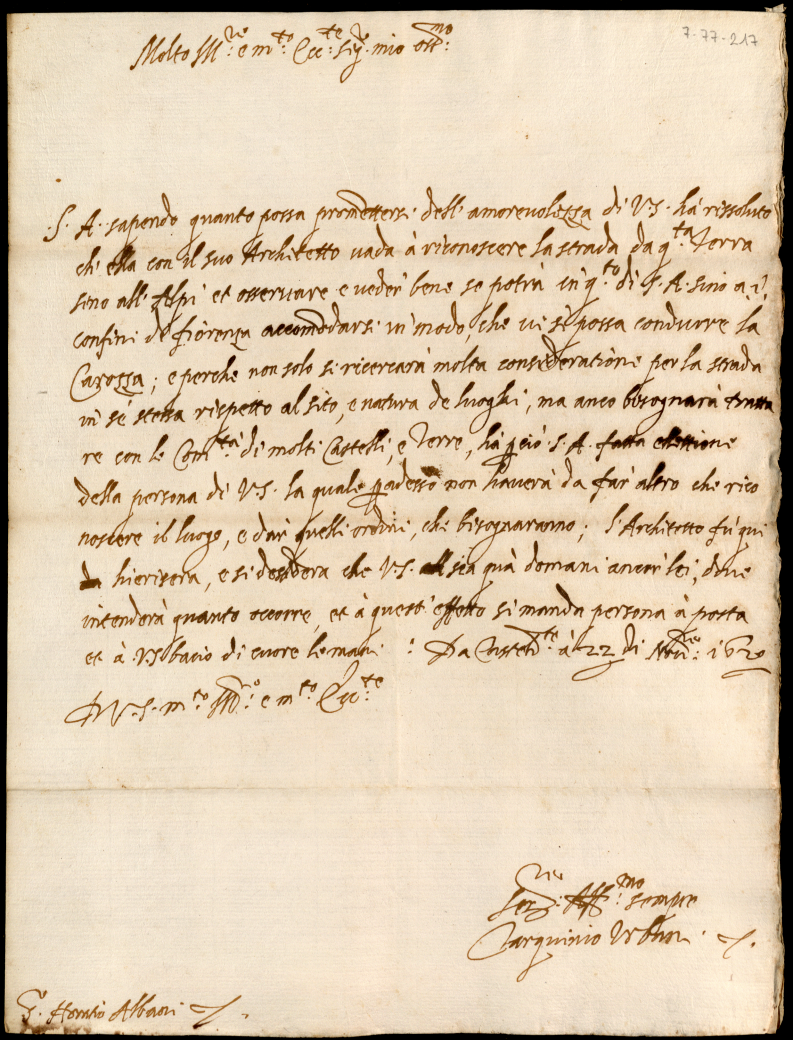 7-77-217
Molto Ill:re e m:to Ecc:te Sig:re mio oss:mo
S. A. sapendo quanto possa promettersi dell' amorevolezza di V.S. hà rissoluto
ch' ella con il suo Architetto vada à riconoscere la strada da q:ta Terra
sino all' Alpi et osservare e veder' bene se potrà in q:to di S. A. sino a i
confini di fiorenza accommodarsi in modo, che vi si possa condurre la
Carozza; e perche non solo si ricercarà molta consideratione per la strada
in se stessa rispetto al sito, e natura de luoghi, ma anco bisognarà tratta
re con le Com:tà di molti Castelli, e Terre, hà perciò S. A. fatta elettione
della persona di V.S. la quale per adesso non haverà da far' altro che rico
noscere il luogo, e dar' quelli ordini, che bisognaranno; l'Architetto fù qui
hierisera, e si desidera che V.S. sia quà domani ancor' lei, dove
intenderà quanto occorre, et à quest' effetto si manda persona à posta
et à V.S. bacio di cuore le mani : Da Casteld:te à 22 di Nov:re 1620
D V.S. m:to Ill:re e m:to Ecc:te
Ser:re Aff:mo sempre
Tarquinio Urbani
S:r Horatio Albani